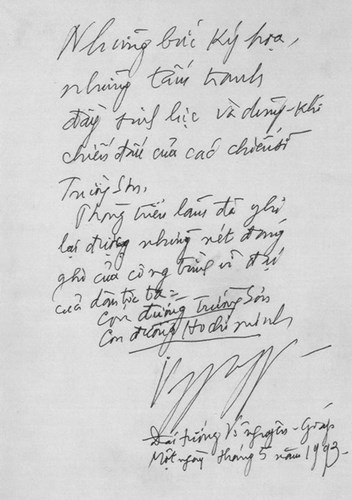 Những bức ký họa,
những tấm tranh
đầy sinh lực và dũng-khí
chiến đấu của các chiến sĩ
Trường Sơn,
Phòng triển lãm đã ghi
lại được những nét đáng
ghi của công trình vĩ đại
của dân tộc ta =
Con đường Trường Sơn
Con đường Hồ Chí Minh
Đại tướng Võ Nguyên-Giáp
Một ngày tháng 5 năm 1993-